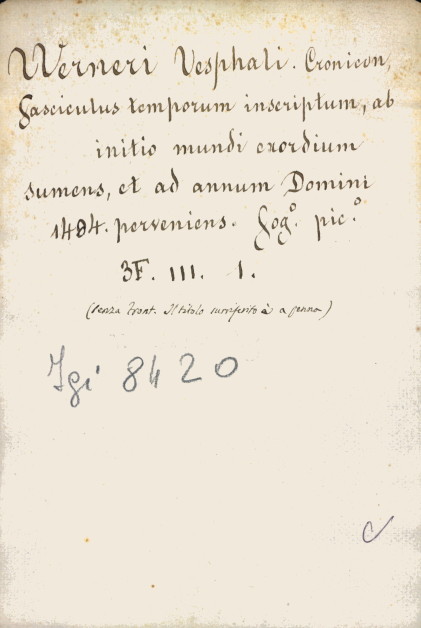 Werneri Vesphali. Cronicon,
Fasciculus temporum inscriptum, ab
initio mundi exordium
sumens, et ad annum Domini
1484. perveniens. Fog.º pic.º
3F. III. 1.
(senza Front. Il titolo surriferito è a penna)
Igi 8420